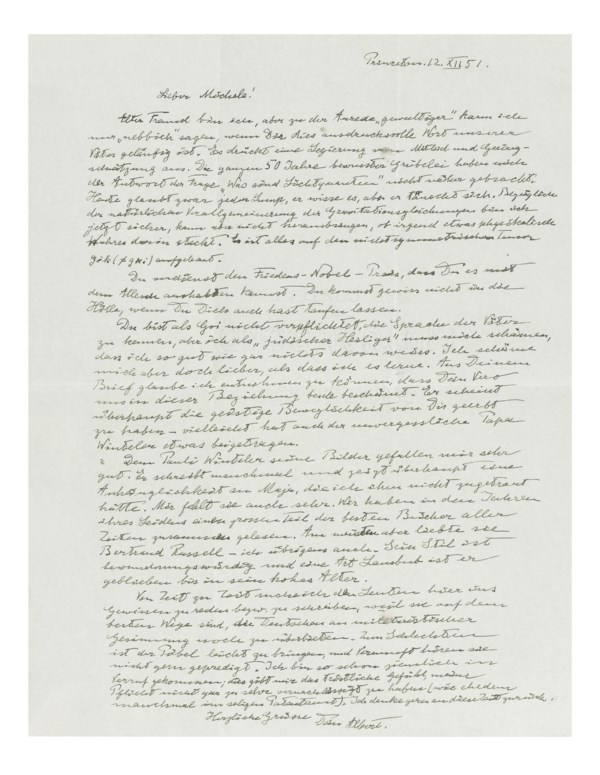 Princeton. 12. XII 51.
Lieber Michele!
Alter Freund bin ich, aber zu der Anrede „gewaltiger" kann ich
nur „nebbich" sagen, wenn Dir dies ausdrucksvolle Wort unserer
Väter geläufig ist. Es drückt eine Legierung von Mitleid und Gering-
schätzung aus. Die ganzen 50 Jahre bewusster Grübelei haben mich
der Antwort der Frage „Was sind Lichtquanten" nicht näher gebracht.
Heute glaubt zwar jeder Lump, er wisse es, aber er täuscht sich. Bezüglich
der natürlichen Verallgemeinerung der Gravitationsgleichungen bin ich
jetzt sicher, kann aber nicht herausbringen, ob irgend etwas physikalisch
Wahres darin steckt. Es ist alles auf den nichtsymmetrischen Tensor
gik (≠ gki) aufgebaut.
Du verdienst den Friedens-Nobel-Preis, dass Du es mit
dem aushalten kannst. Du kommst gewiss nicht in die
Hölle, wenn Du Dich auch hast taufen lassen.
Du bist als Goi nicht verpflichtet, die Sprache der Väter
zu kennen, aber ich als „jüdischer Heiliger" muss mich schämen,
dass ich so gut wie gar nichts davon weiss. Ich schäme
mich aber doch lieber, als dass ich es lerne. Aus Deinem
Brief glaube ich entnehmen zu können, dass Dein Vero
uns in dieser Beziehung beide beschämt. Er scheint
überhaupt die geistige Beweglichkeit von Dir geerbt
zu haben – vielleicht hat auch der unvergessliche Papa
Winteler etwas beigetragen.
Dem Pauli Winteler seine Bilder gefallen mir sehr
gut. Er schreibt manchmal und zeigt überhaupt eine
Anhänglichkeit an Maja, die ich ihm nicht zugetraut
hätte. Mir fehlt sie auch sehr. Wir haben in den Jahren
ihres Leidens einen grossen Teil der besten Bücher aller
Zeiten zusammen gelesen. Am meisten aber liebte sie
Bertrand Russell – ich übrigens auch. Sein Stil ist
bewundrungswürdig und eine Art Lausbub ist er
geblieben bis in sein hohes Alter.
Von Zeit zu Zeit suche ich den Leuten hier ins
Gewissen zu reden bezw. zu schreiben, weil sie auf dem
besten Wege sind, die Deutschen an militaristischer
Gesinnung noch zu überbieten. Zum Schlechten
ist der Pöbel leicht zu bringen, und Vernunft hören sie
nicht gern gepredigt. Ich bin so schon ziemlich in
Verruf gekommen, dies gibt mir das tröstliche Gefühl, meine
Pflicht nicht gar zu sehr vernachlässigt zu haben (wie ehedem
manchmal im seligen Patentamt). Ich denke gern an diese Zeit zurück.
Herzliche Grüsse Dein Albert.